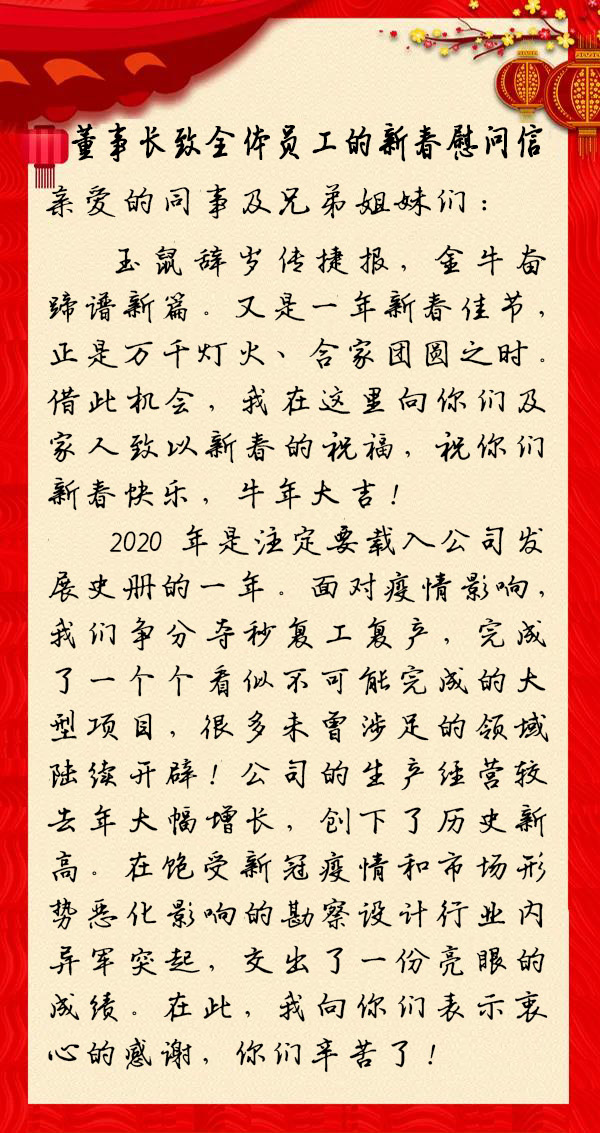 董事长致全体员工的新春慰问信
亲爱的同事及兄弟姐妹们：
玉鼠辞岁传捷报，金牛奋
蹄谱新篇。又是一年新春佳节，
正是万千灯火、合家团圆之时。
借此机会，我在这里向你们及
家人致以新春的祝福，祝你们
新春快乐，牛年大吉！
2020 年是注定要载入公司发
展史册的一年。面对疫情影响，
我们争分夺秒复工复产，完成
了一个个看似不可能完成的大
型项目，很多未曾涉足的领域
陆续开辟！公司的生产经营较
去年大幅增长，创下了历史新
高。在饱受新冠疫情和市场形
势恶化影响的勘察设计行业内
异军突起，交出了一份亮眼的
成绩。在此，我向你们表示衷
心的感谢，你们辛苦了！